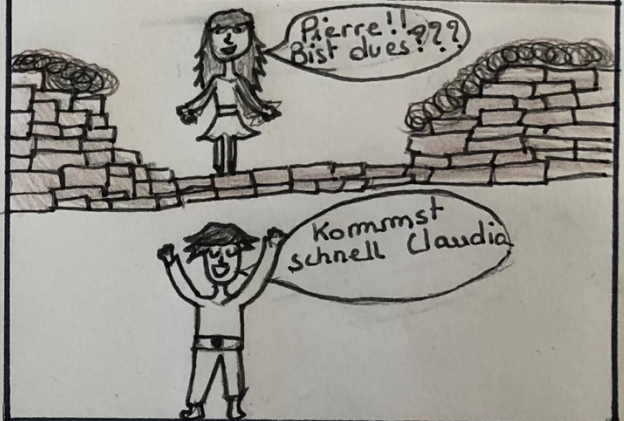 Pierre!!
Bist dues???
Kommst
schnell Claudia